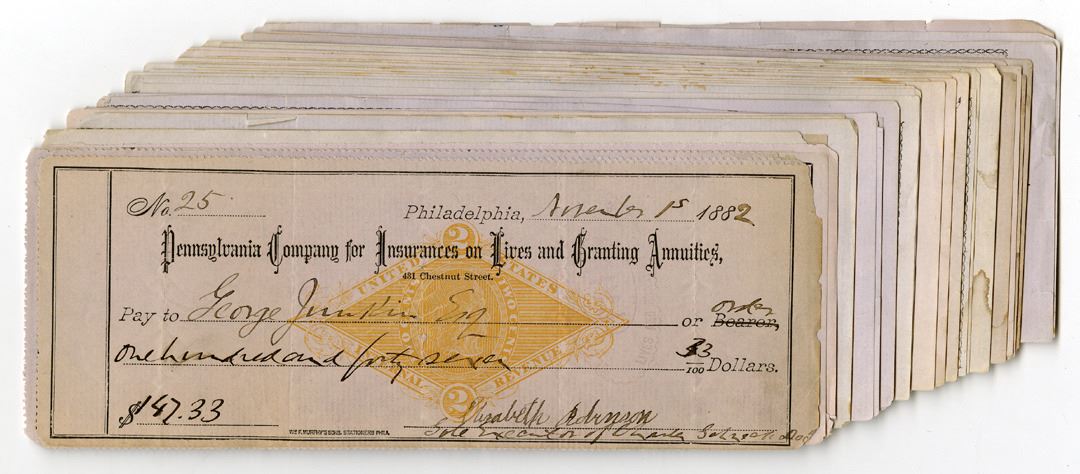 No. 25
Philadelphia, November 1st 1882
Pennsylvania Company for Insurances on Lives and Granting Annuities,
431 Chestnut Street.
Pay to George Junkin Esq or Bearer, order
one hundred and forty seven 33/100 Dollars.
$147.33
UNITED STATES
INTERNAL REVENUE
2
2
Elizabeth Robinson
Sole Executor of Charles
WM F. MURPHY'S SONS, STATIONERS PHILA.